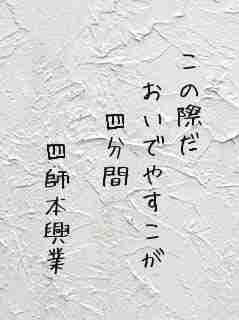 この際だ
おいでやすこが
四分間
四師本興業